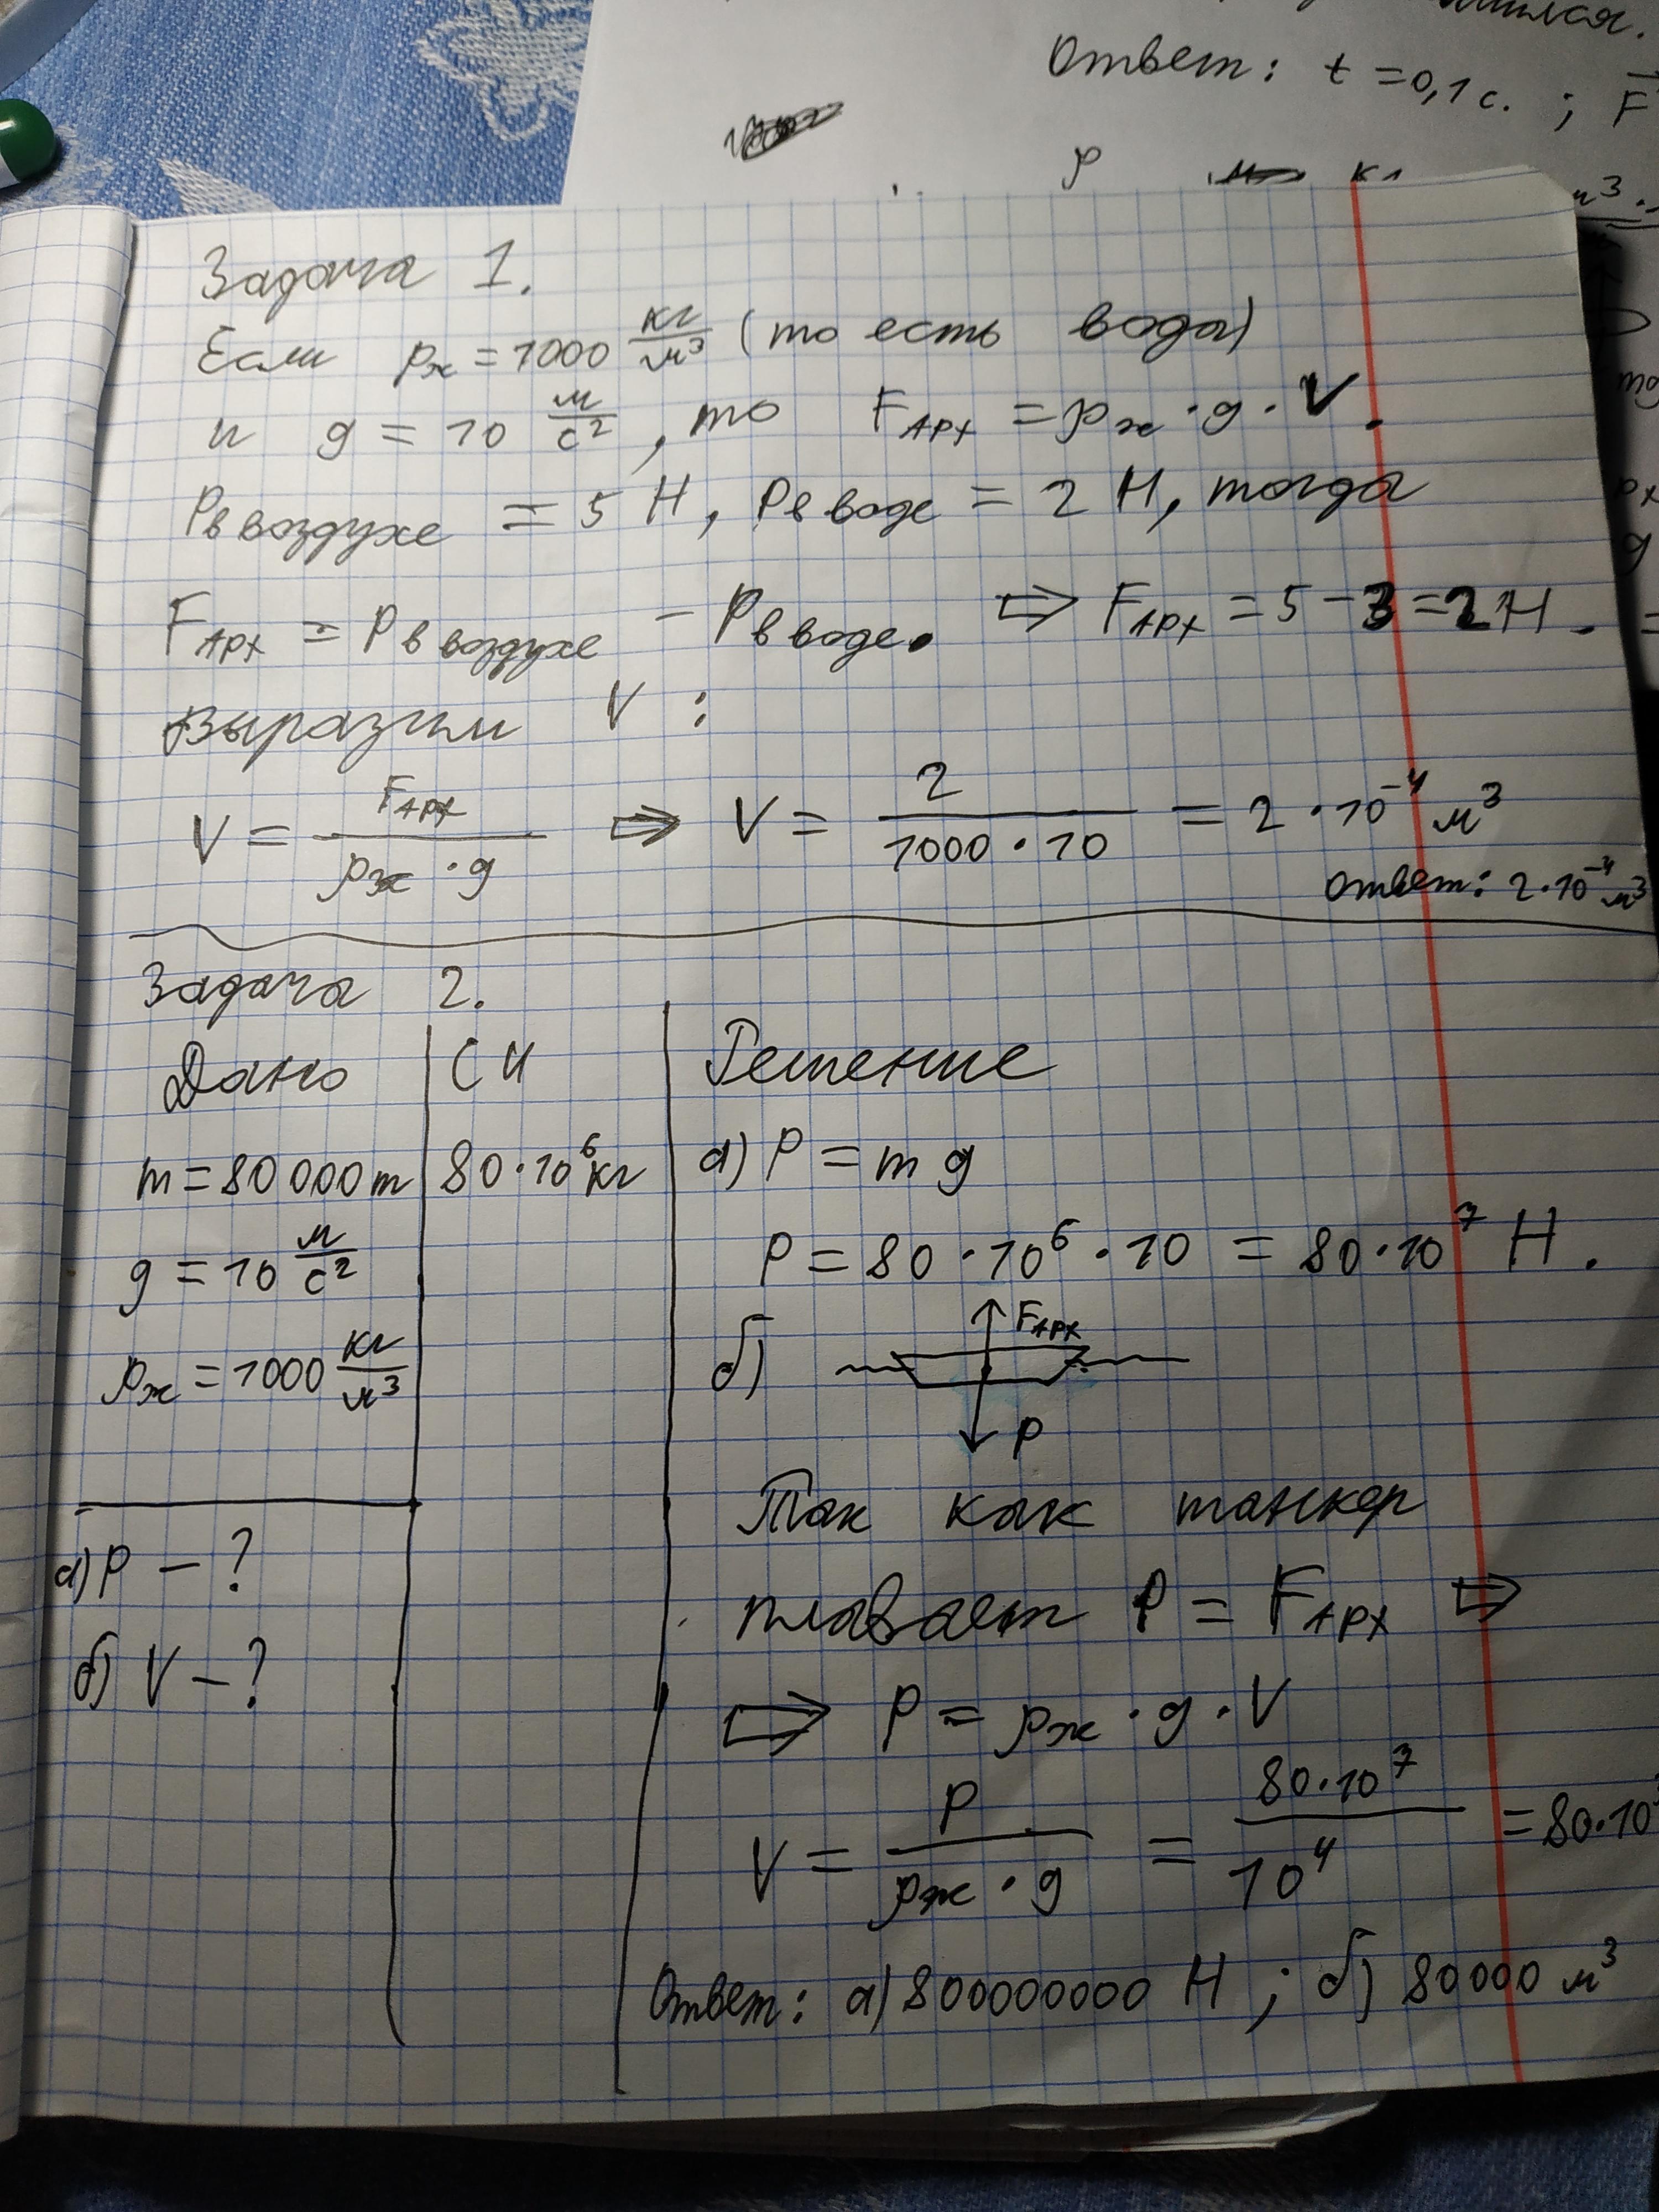 Ответ: t = 0,1 с. ; F
Задача 1.
Если ρж = 1000 кг/м³ (то есть вода)
и g = 10 м/с², то FАРХ = ρж · g · V.
Pв воздухе = 5 Н, Pв воде = 2 Н, тогда
FАРХ = Pв воздухе − Pв воде. ⇒ FАРХ = 5 − 3 = 2 Н.
Выразим V :
V = FАРХ / ρж · g ⇒ V = 2 / 1000 · 10 = 2 · 10⁻⁴ м³
Ответ: 2 · 10⁻⁴ м³
Задача 2.
Дано
m = 80 000 т
g = 10 м/с²
ρж = 1000 кг/м³
а) P − ?
б) V − ?
СИ
80 · 10⁶ кг
Решение
а) P = mg
P = 80 · 10⁶ · 10 = 80 · 10⁷ Н.
б)
FАРХ
P
Так как танкер
плавает P = FАРХ ⇒
⇒ P = ρж · g · V
V = P / ρж · g = 80 · 10⁷ / 10⁴ = 80 · 10
Ответ: а) 800000000 Н ; б) 80000 м³